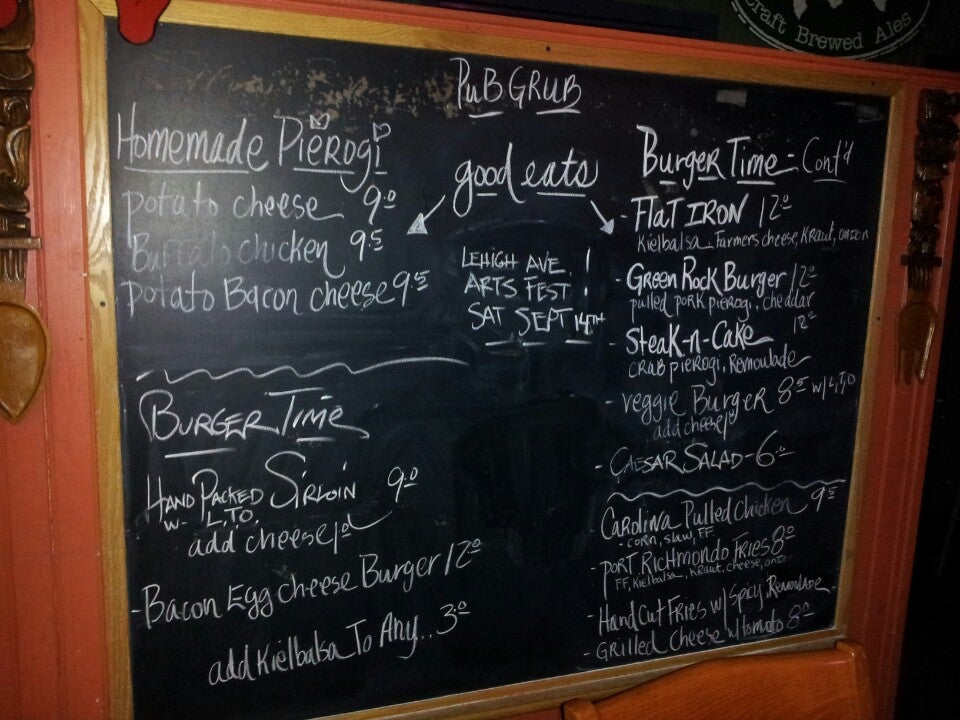 Craft Brewed Ales
PUB GRUB
good eats
LEHIGH AVE !
ARTS FEST !
SAT SEPT 14TH
Homemade Pierogi
potato cheese 9.0
Buffalo chicken 9.5
potato Bacon cheese 9.5
BURGER TIME
HAND PACKED SIRLOIN 9.0
w- L,T,O.
add cheese
- Bacon Egg cheese Burger 12.0
add Kielbalsa To Any.. 3.0
Burger Time - Cont'd
- Flat IRON 12.0
Kielbalsa Farmers cheese, Kraut, onion
- Green Rock Burger 12.0
pulled pork pierogi, cheddar
- Steak-n-Cake 12.0
crab pierogi, Remoulade
- veggie Burger 8.5 w/ L,T,O
add cheese
- CAESAR SALAD - 6.0
Carolina Pulled Chicken 9.5
- corn, slaw, FF
- PORT RICHMONDO FRIES 8.0
FF, Kielbalsa, Kraut, cheese, onion
- Hand Cut Fries w/ Spicy Remoulade -
- Grilled Cheese w/ tomato 8.0